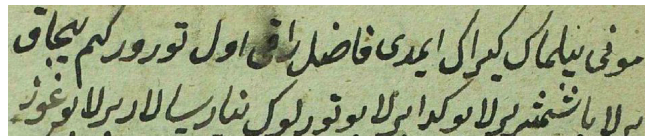 مونی بیلماک کیراک ایمدی فاضل راق اول تورور کیم بیجاق
برلا یا برلا بوکدا برلا بو تورلوک نیارسالار برلا بوغوز